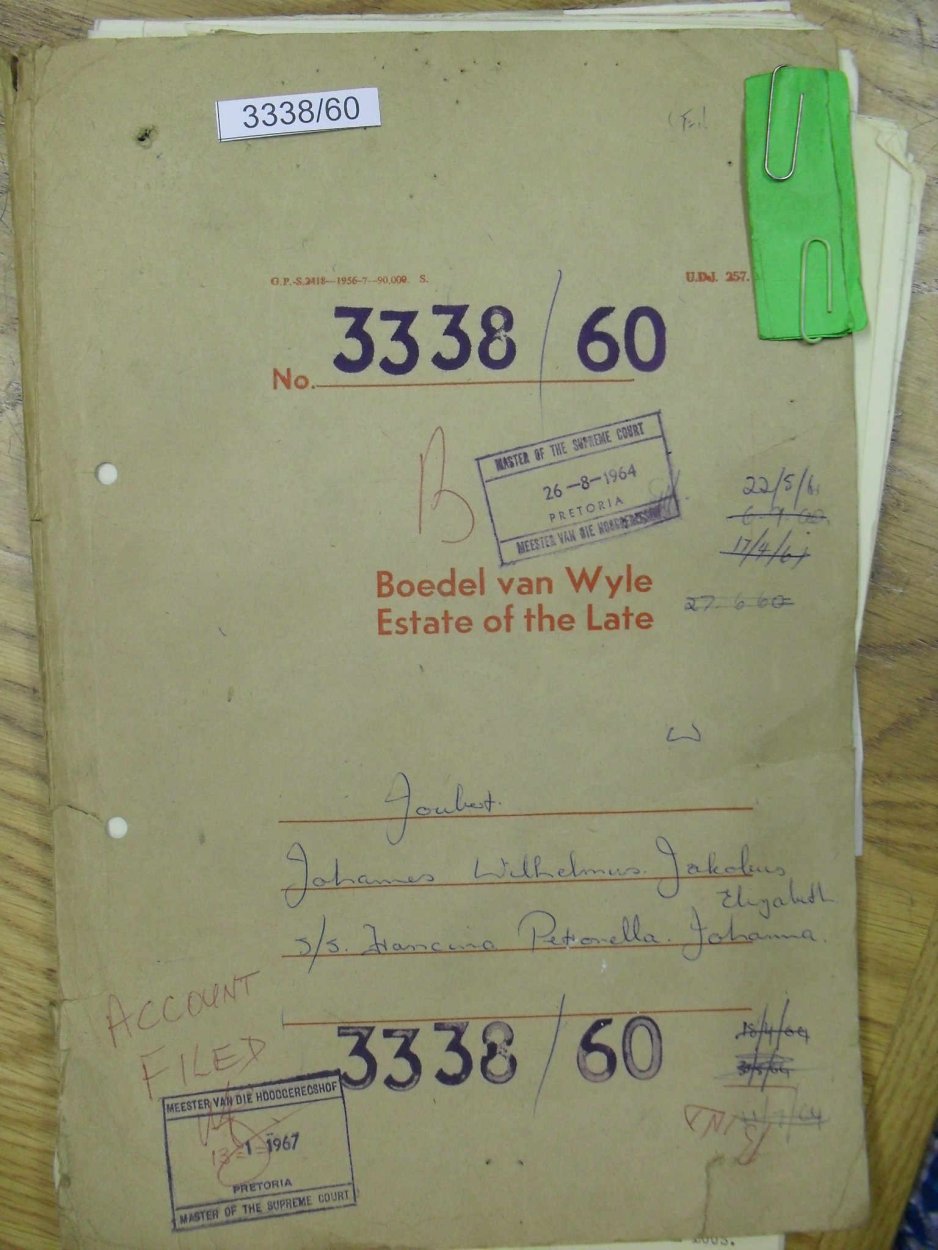 3338/60
G.P.-S.2418—1956-7—90,000. S.
U.D.J. 257.
No. 3338/60
B
MASTER OF THE SUPREME COURT
26-8-1964
PRETORIA
MEESTER VAN DIE HOOGGEREGSHOF
22/5/61
17/4/61
27.6.60
Boedel van Wyle
Estate of the Late
Joubert.
Johannes Wilhelmus Jakobus
Elizabeth
s/s. Francina Petronella Johanna.
ACCOUNT
FILED
3338/60
18/4/64
MEESTER VAN DIE HOOGGEREGSHOF
1967
PRETORIA
MASTER OF THE SUPREME COURT